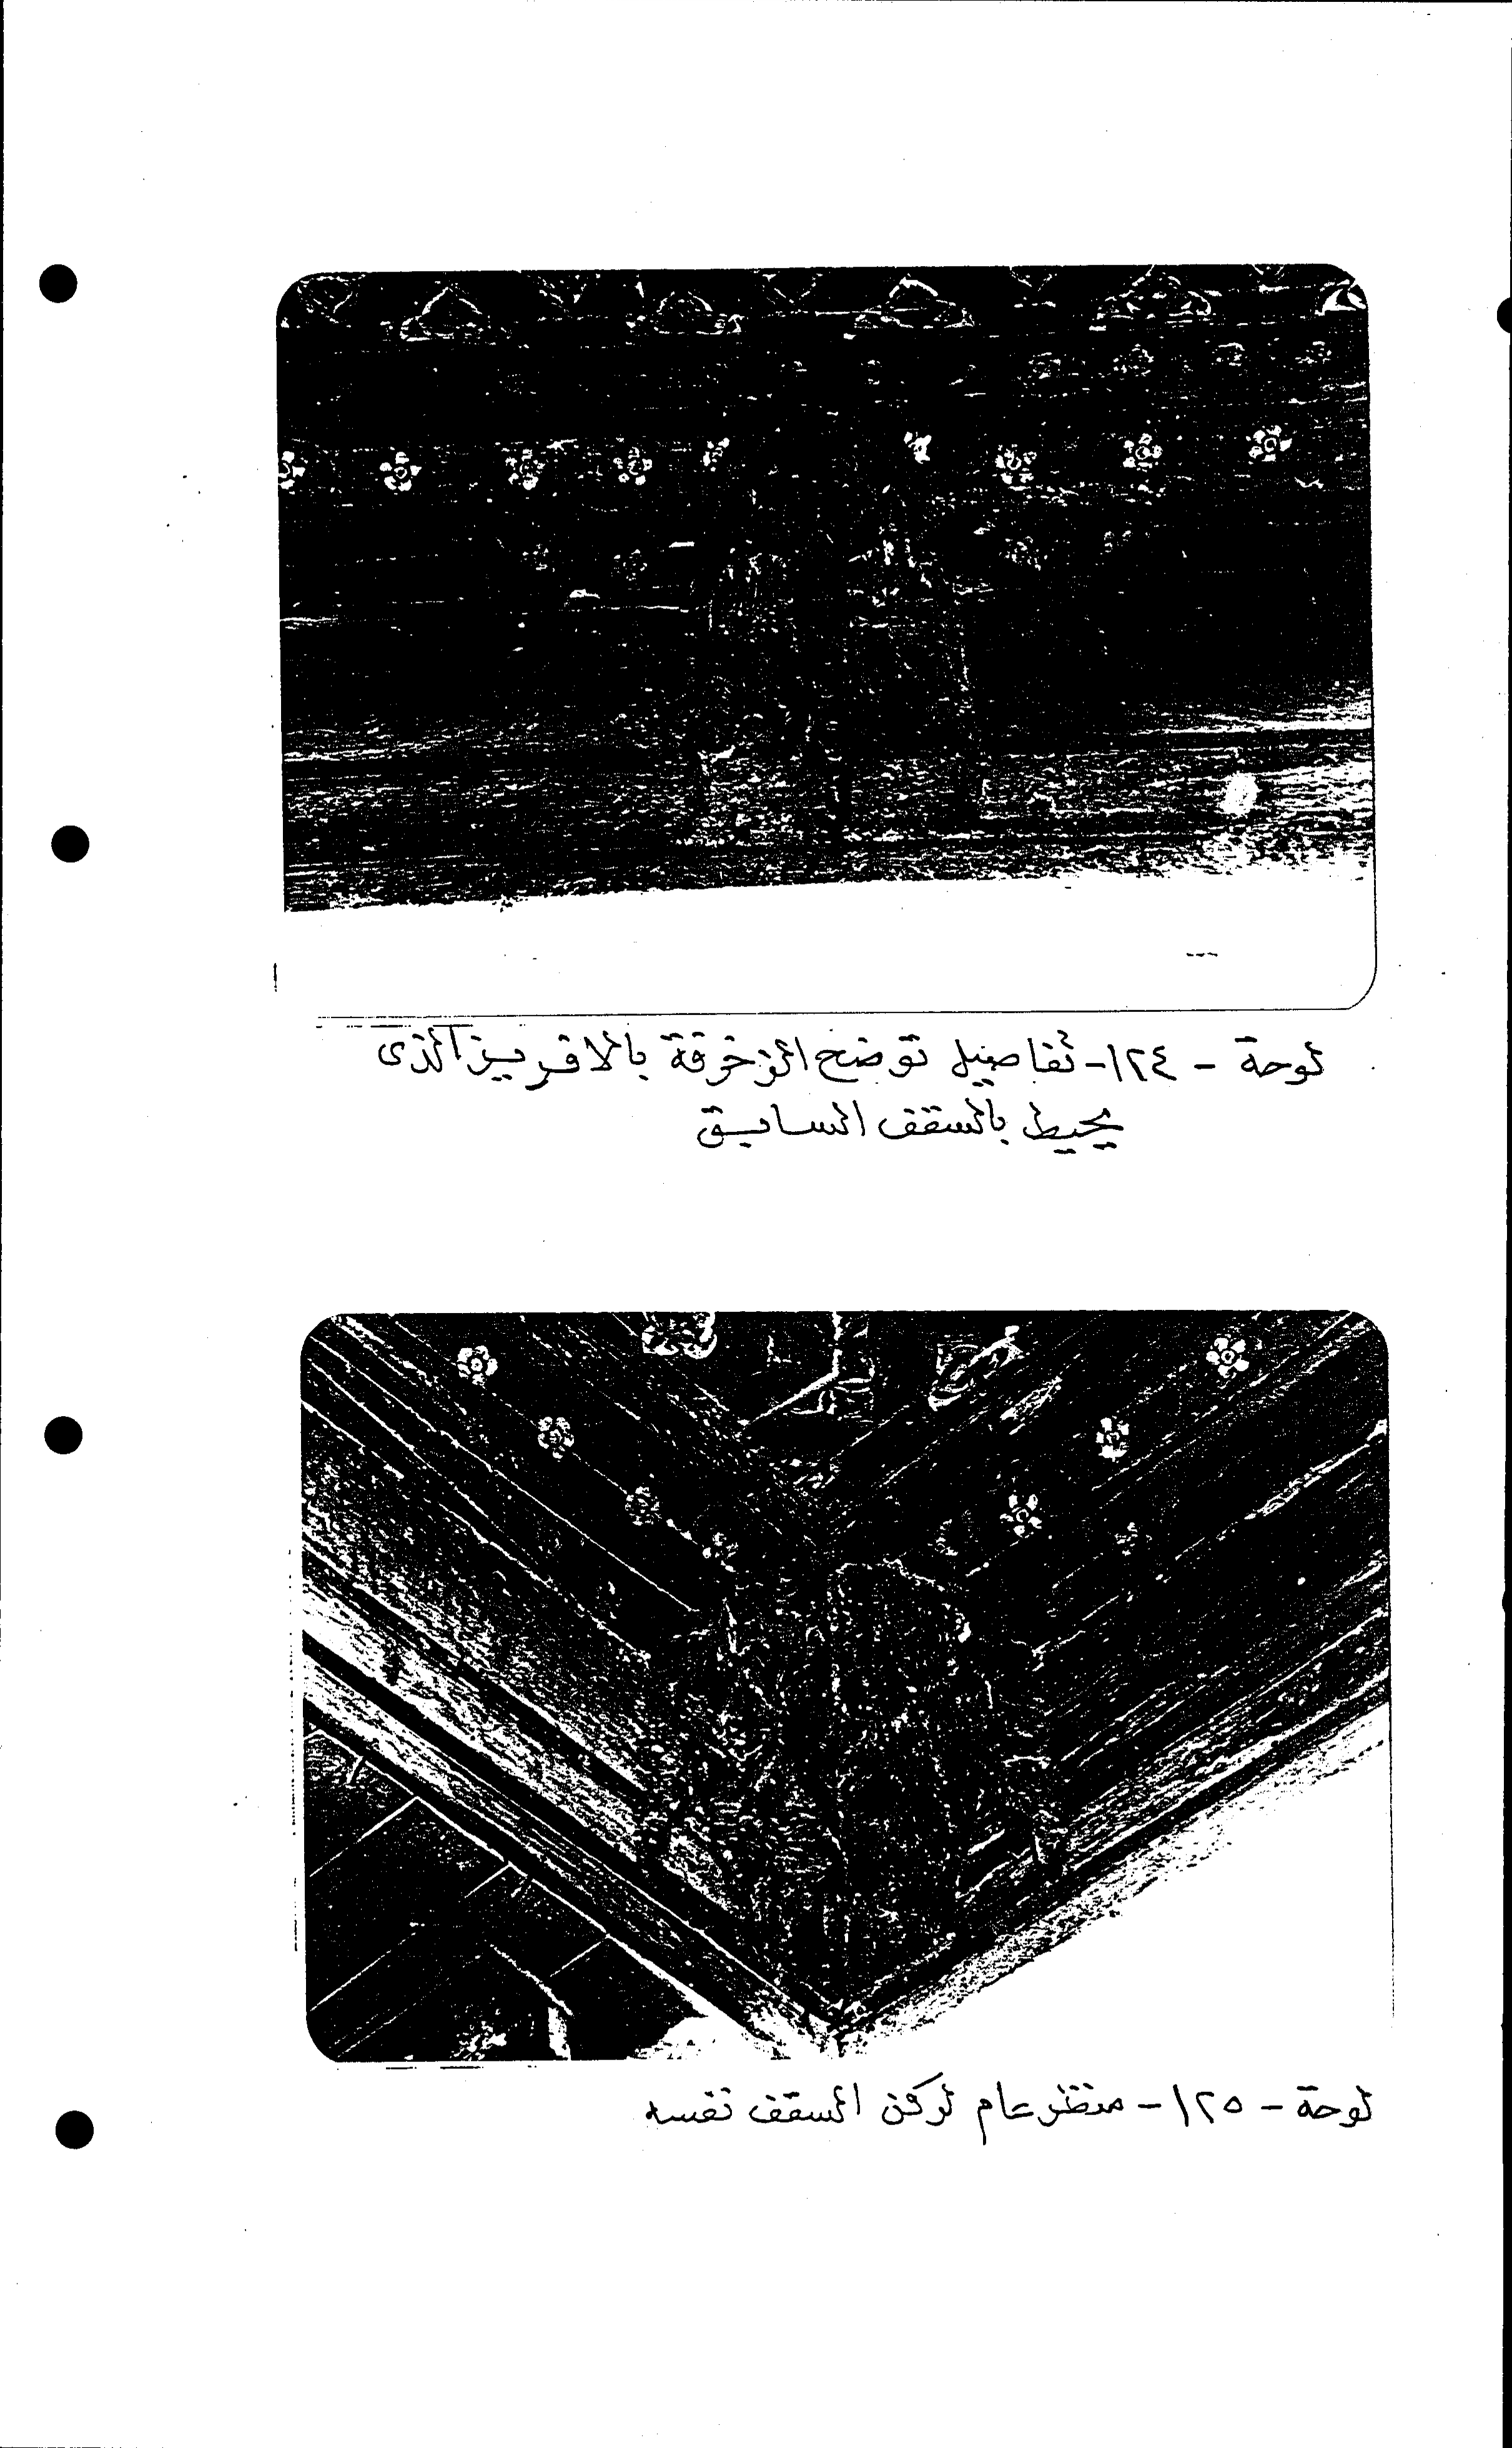 لوحة - ١٢٤- تفاصيل توضح الزخرفة بالافريز الذى
يحيط بالسقف السابق
لوحة - ١٢٥ - منظر عام لركن السقف نفسه